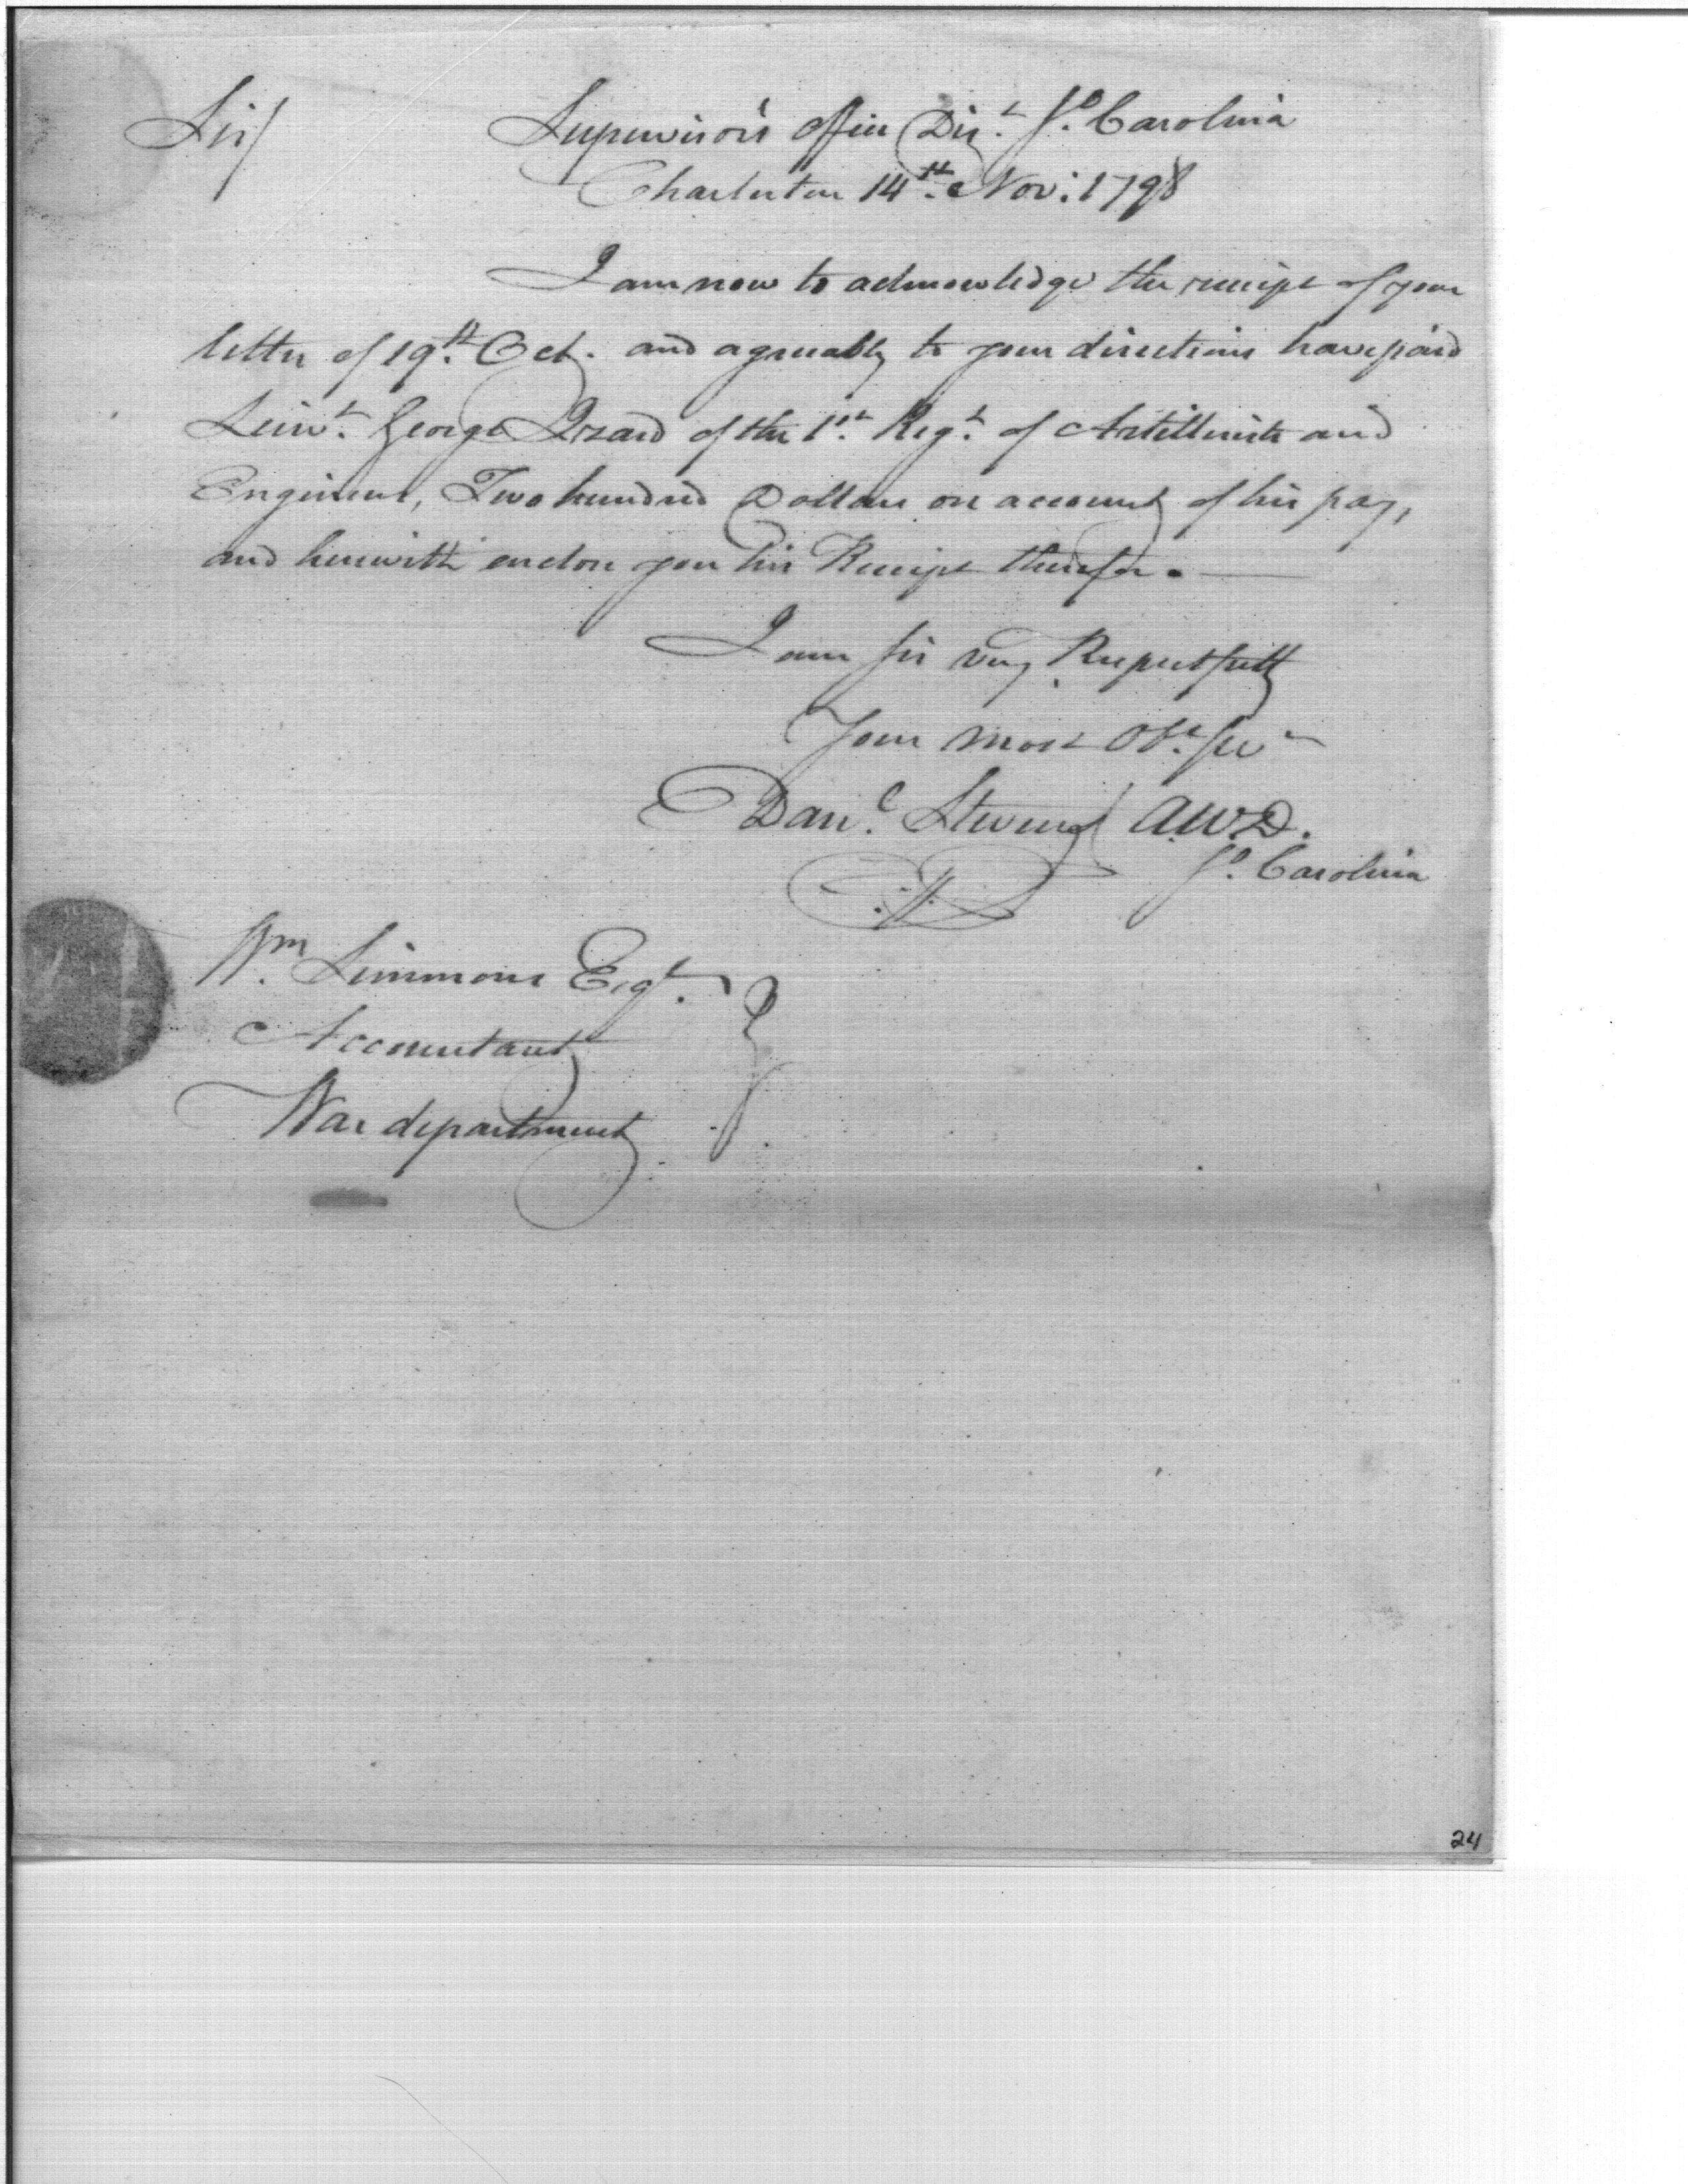 Sir/ Supervisor's Office Dist. So. Carolina
Charleston 14th. Nov: 1798
I am now to acknowledge the receipt of your
letter of 19th. Oct. and agreeably to your directions have paid
Lieut. George Izard of the 1st. Regt. of Artillerists and
Engineers, Two hundred Dollars on account of his pay,
and herewith enclose you his Receipt therefor. —
I am Sir very Respectfully
Your most Obt. Sert
Danl. Stevens
So. Carolina
Wm. Simmons Esqr.
Accountant
War department
24